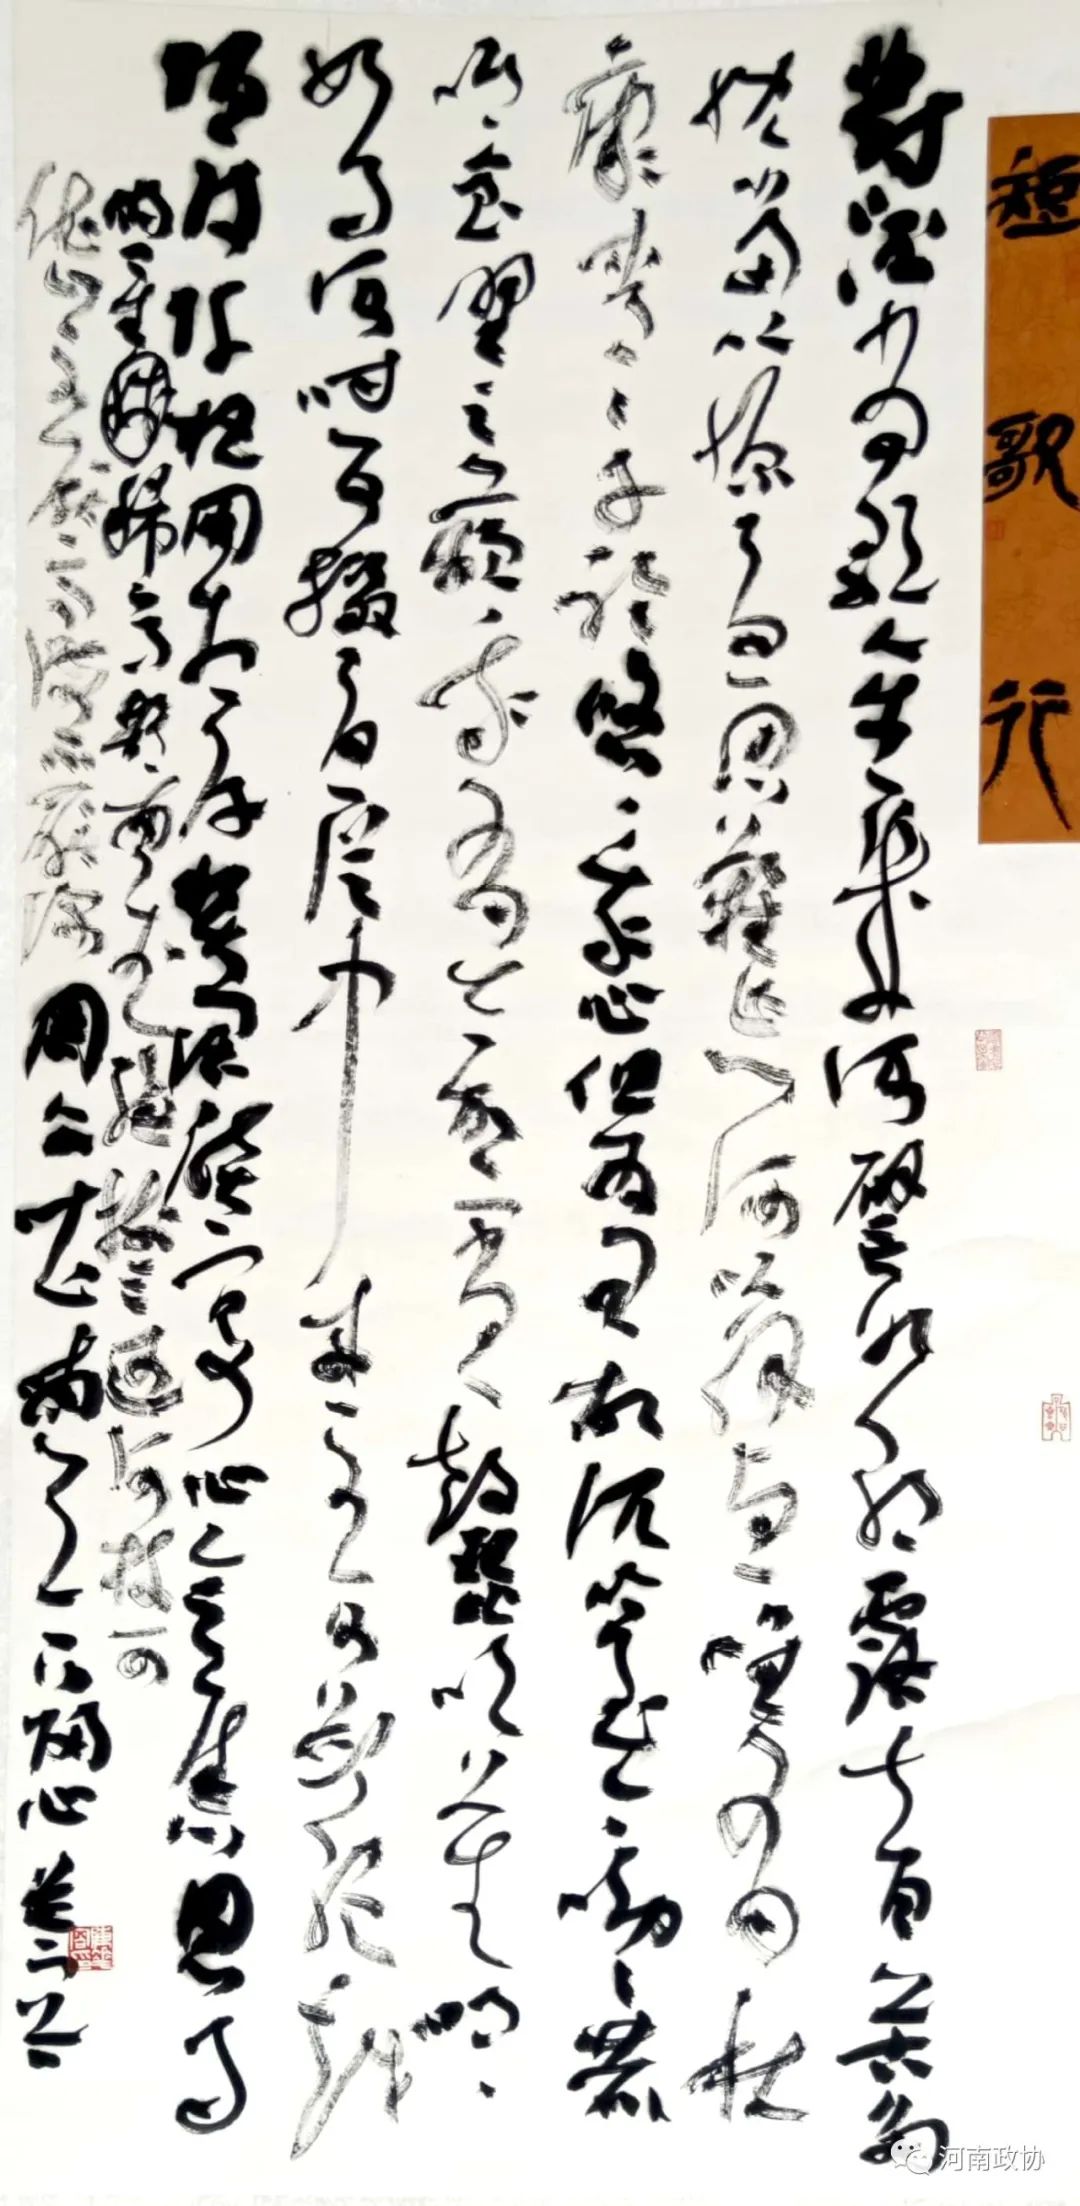 短歌行
對酒當歌人生幾何譬如朝露去日苦多
慨當以慷憂思難忘何以解憂唯有杜
康青青子衿悠悠我心但為君故沉吟至今呦呦鹿
鳴食野之苹我有嘉賓鼓瑟吹笙明明
如月何時可掇憂從中來不可斷絕越
陌度阡枉用相存契闊談讌心念舊恩月
明星稀烏鵲南飛繞樹三匝何枝可
依山不厭高海不厭深周公吐哺天下歸心
河南政协